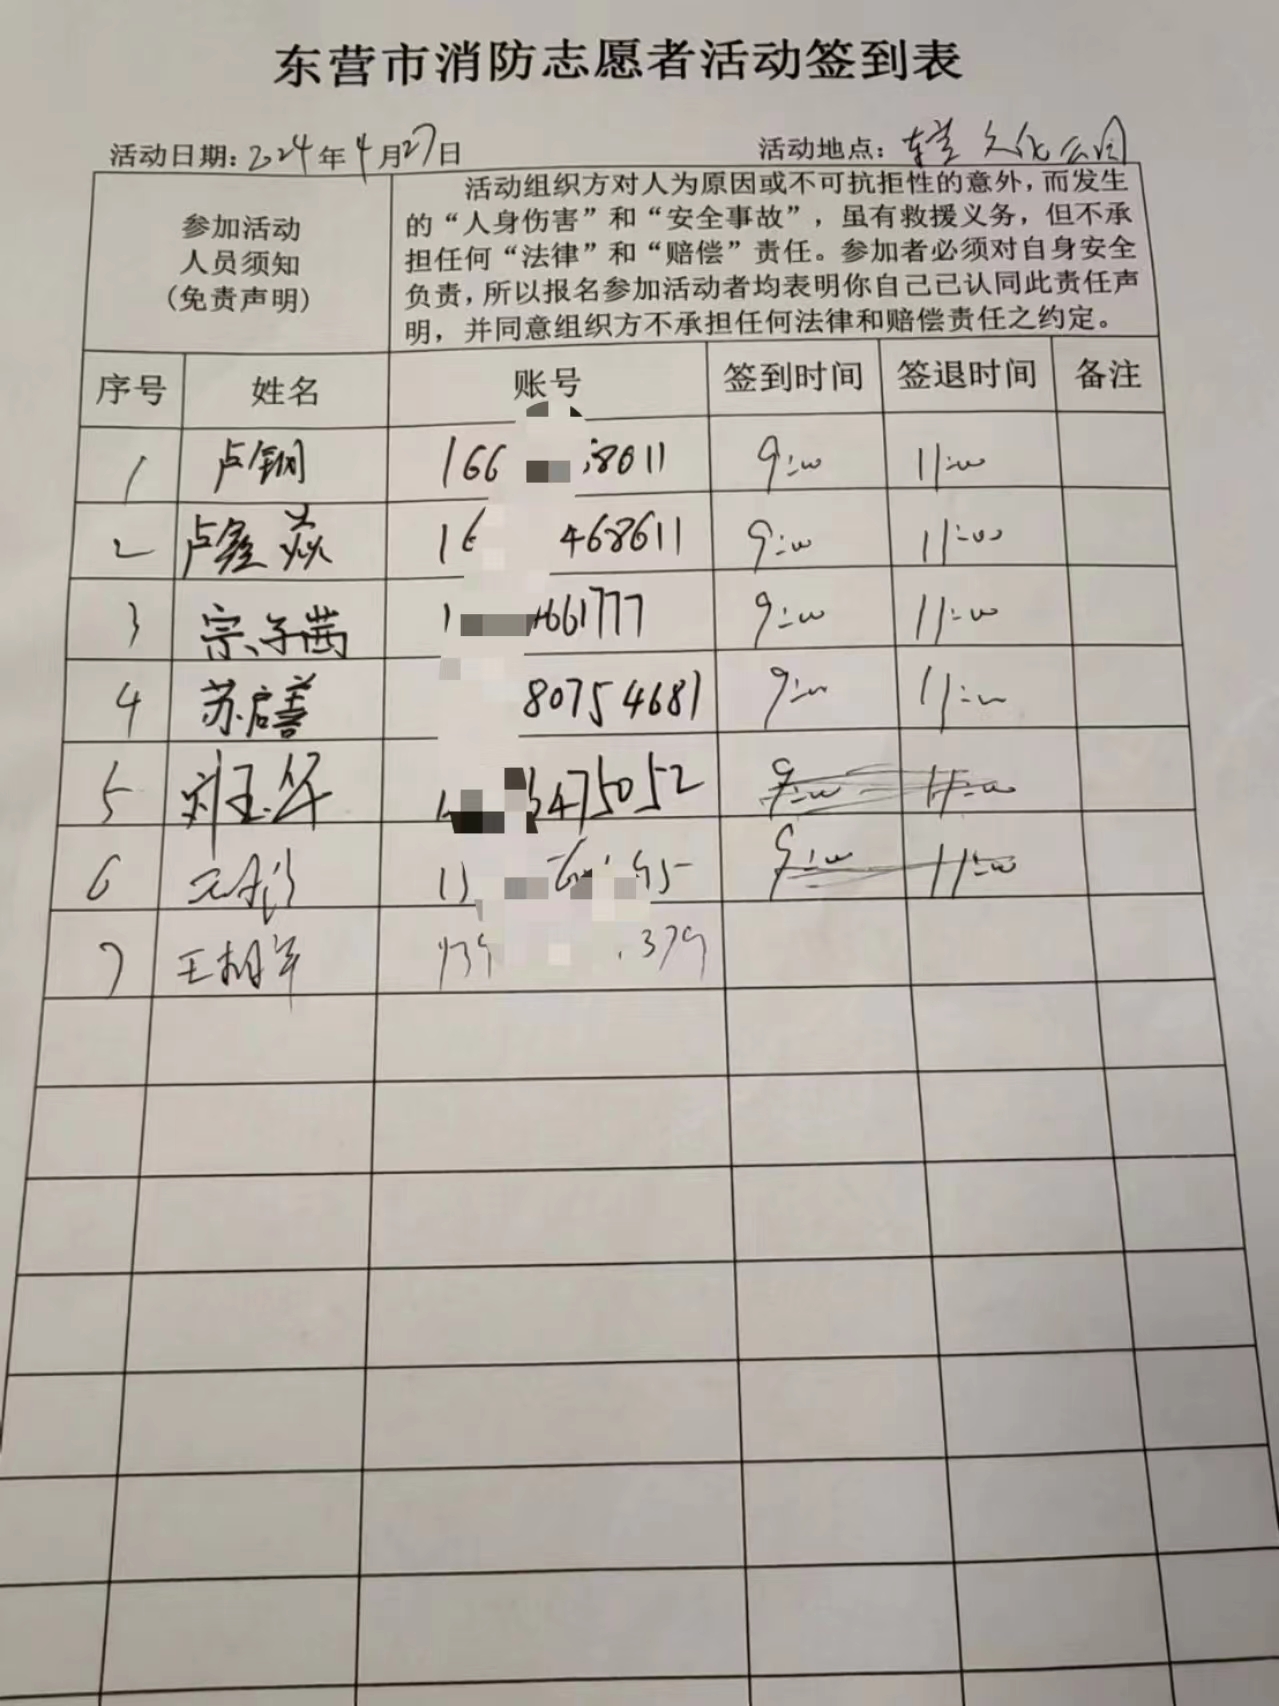 东营市消防志愿者活动签到表
活动日期：2024年4月27日 活动地点：东营文化公园
参加活动
人员须知
（免责声明）
活动组织方对人为原因或不可抗拒性的意外，而发生
的“人身伤害”和“安全事故”，虽有救援义务，但不承
担任何“法律”和“赔偿”责任。参加者必须对自身安全
负责，所以报名参加活动者均表明你自己已认同此责任声
明，并同意组织方不承担任何法律和赔偿责任之约定。
序号 姓名 账号 签到时间 签退时间 备注
1 卢钢 166 8011 9:00 11:00
2 卢鑫焱 16 468611 9:00 11:00
3 宗子茜 1 661777 9:00 11:00
4 苏启善 80754681 9:00 11:00
5 刘玉华 475052 9:00 11:00
6 13 9:00 11:00
7 王相军 139 379